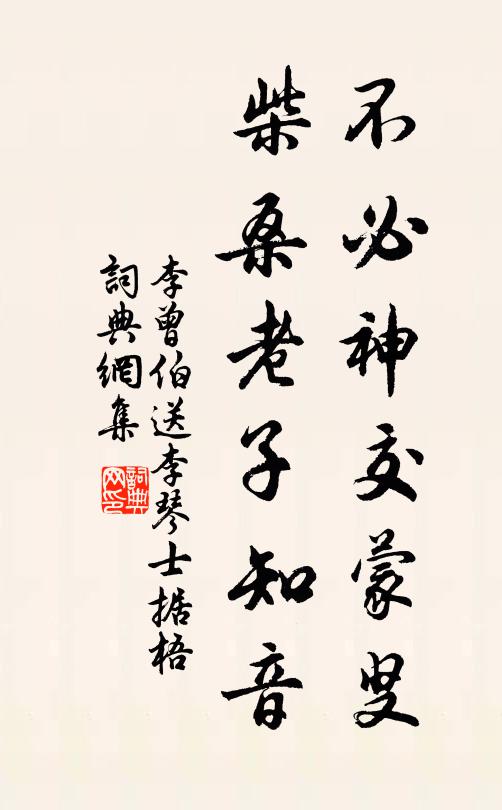 不必神交蒙叟
柴桑老子知音
李曾伯送李琴士据梧
詞典網集
詞典网印